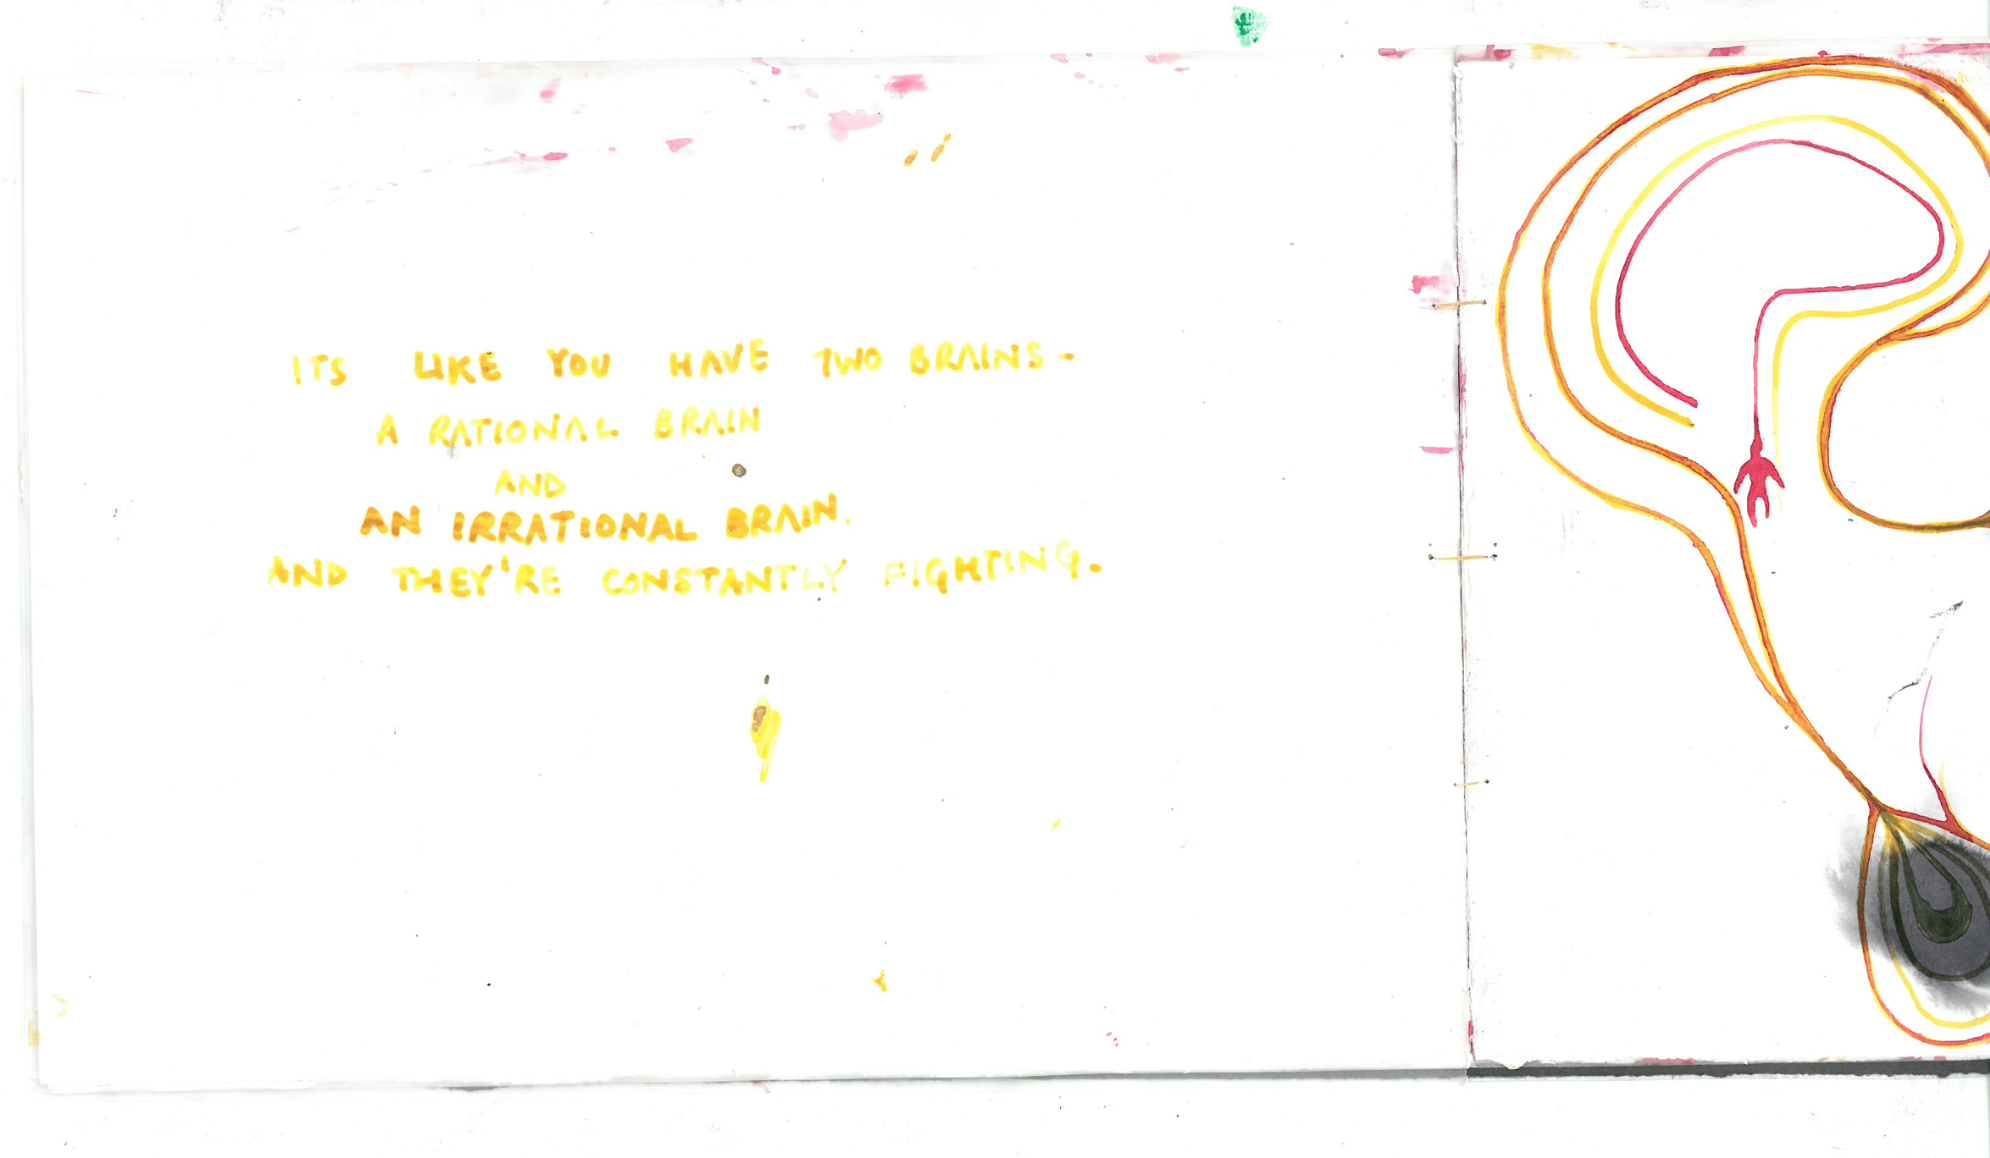 ITS LIKE YOU HAVE TWO BRAINS-
A RATIONAL BRAIN
AND
AN IRRATIONAL BRAIN.
AND THEY'RE CONSTANTLY FIGHTING.